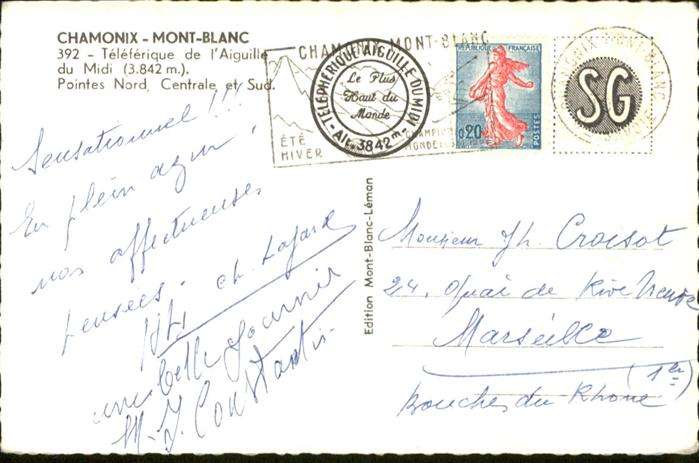 CHAMONIX - MONT-BLANC
392 - Téléférique de l'Aiguille
du Midi (3.842 m.)
Pointes Nord, Centrale et Sud.
CHAMONIX MONT-BLANC
ÉTÉ
HIVER
CHAMPION
MONDE
TÉLÉPHÉRIQUE AIGUILLE DU MIDI
Le Plus
Haut du
Monde
Alt. 3842 m
REPUBLIQUE FRANÇAISE
0,20
POSTES
SG
MONT-BLANC
Sensationnel !!!
En plein azur,
nos affectueuses
pensées.
une belle journée
M. J. Constantin
Edition Mont-Blanc-Léman
Monsieur Jh. Croisot
24, Quai de Rive Neuve
Marseille
(1er)
Bouches du Rhône